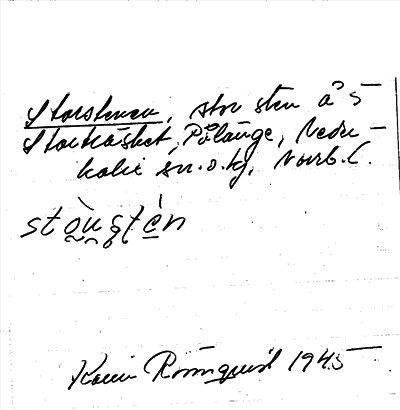 Storstenen, stor sten å S
Storträsket, Pålänge, Neder-
kalix sn. o. kg, Norrb. l.
stòu̯s̩tèn
Karin Rönnquist 1945